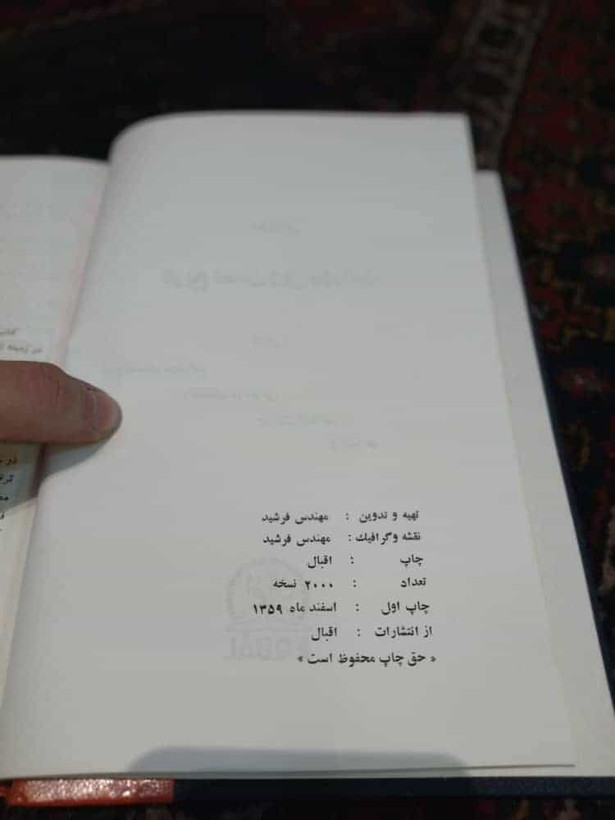 تهیه و تدوین : مهندس فرشید
نقشه وگرافیك : مهندس فرشید
چاپ : اقبال
تعداد : ۲۰۰۰ نسخه
چاپ اول : اسفند ماه ۱۳۵۹
از انتشارات : اقبال
« حق چاپ محفوظ است »